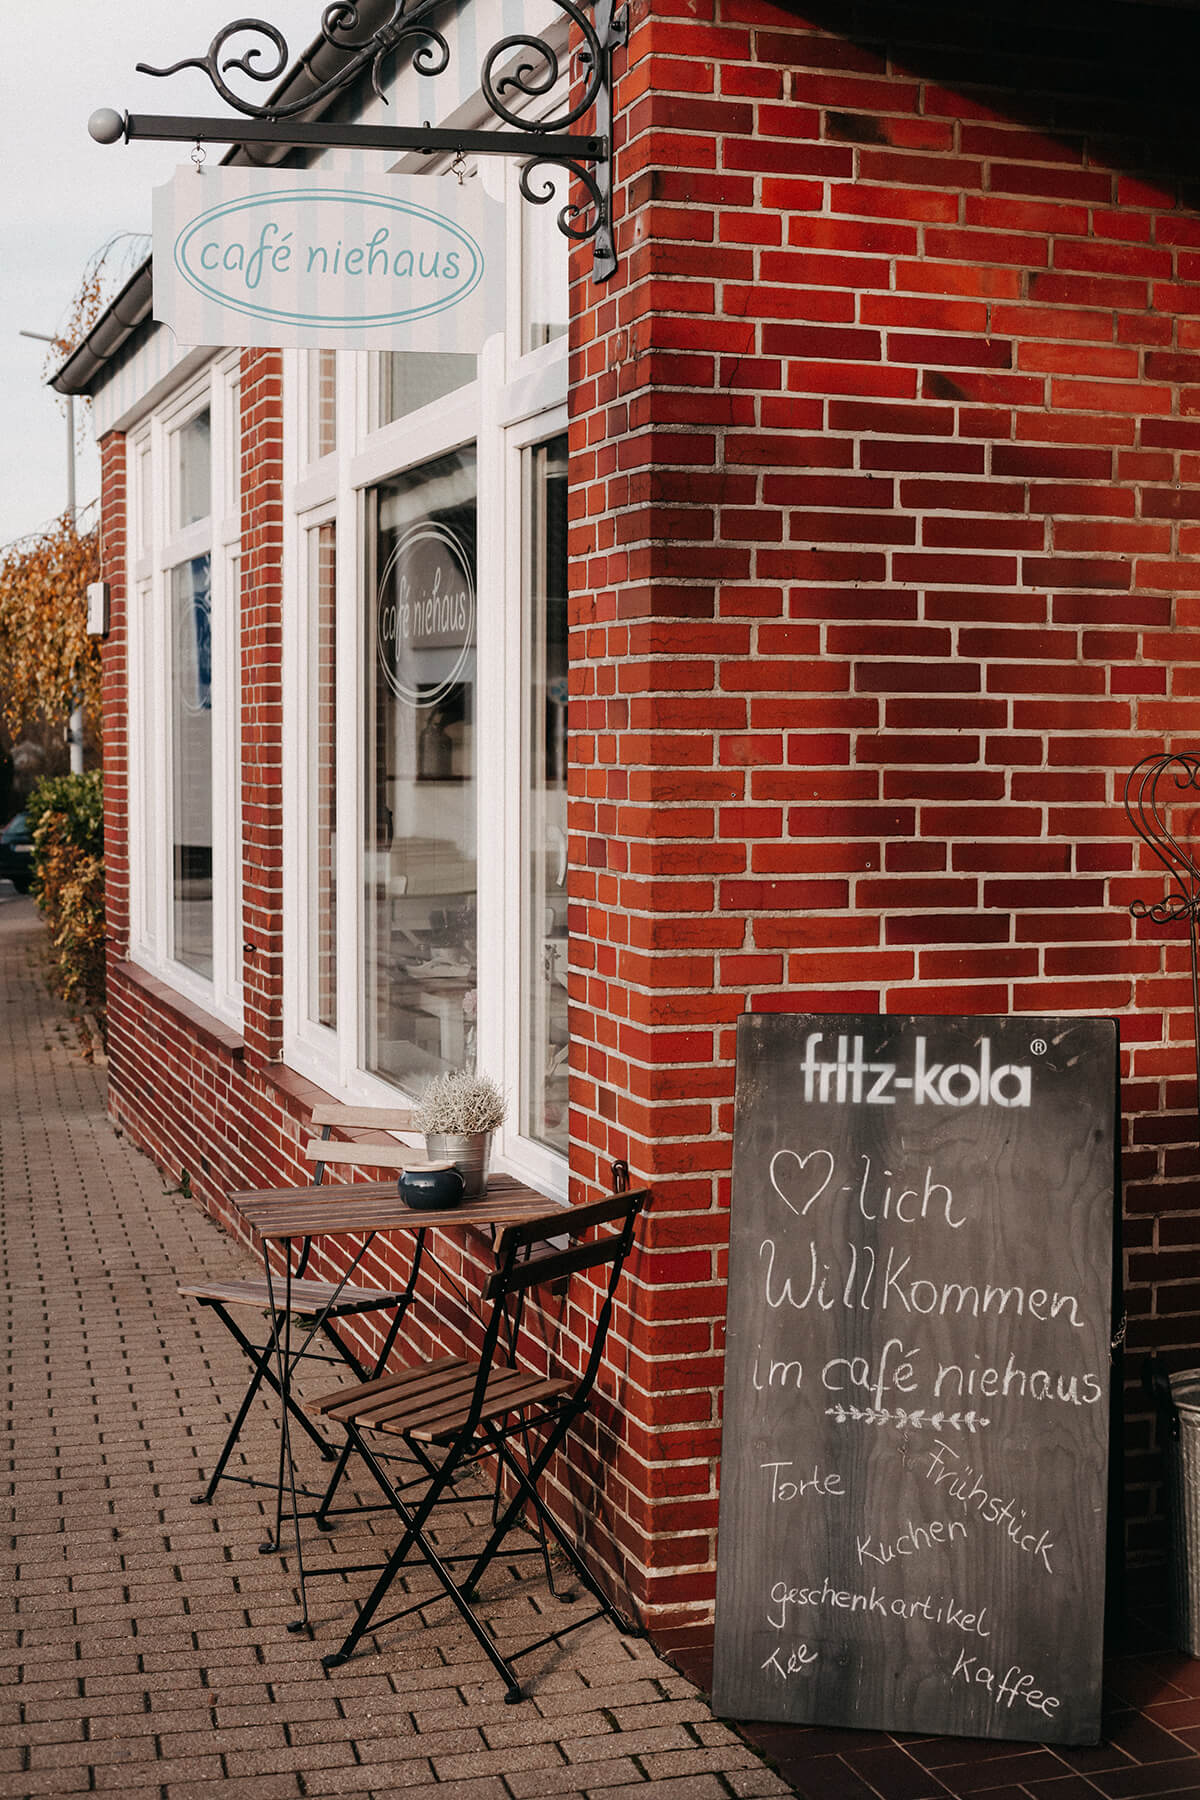 café niehaus
café niehaus
fritz-kola®
♡-lich
Willkommen
im café niehaus
Torte
Frühstück
Kuchen
geschenkartikel
Tee
Kaffee